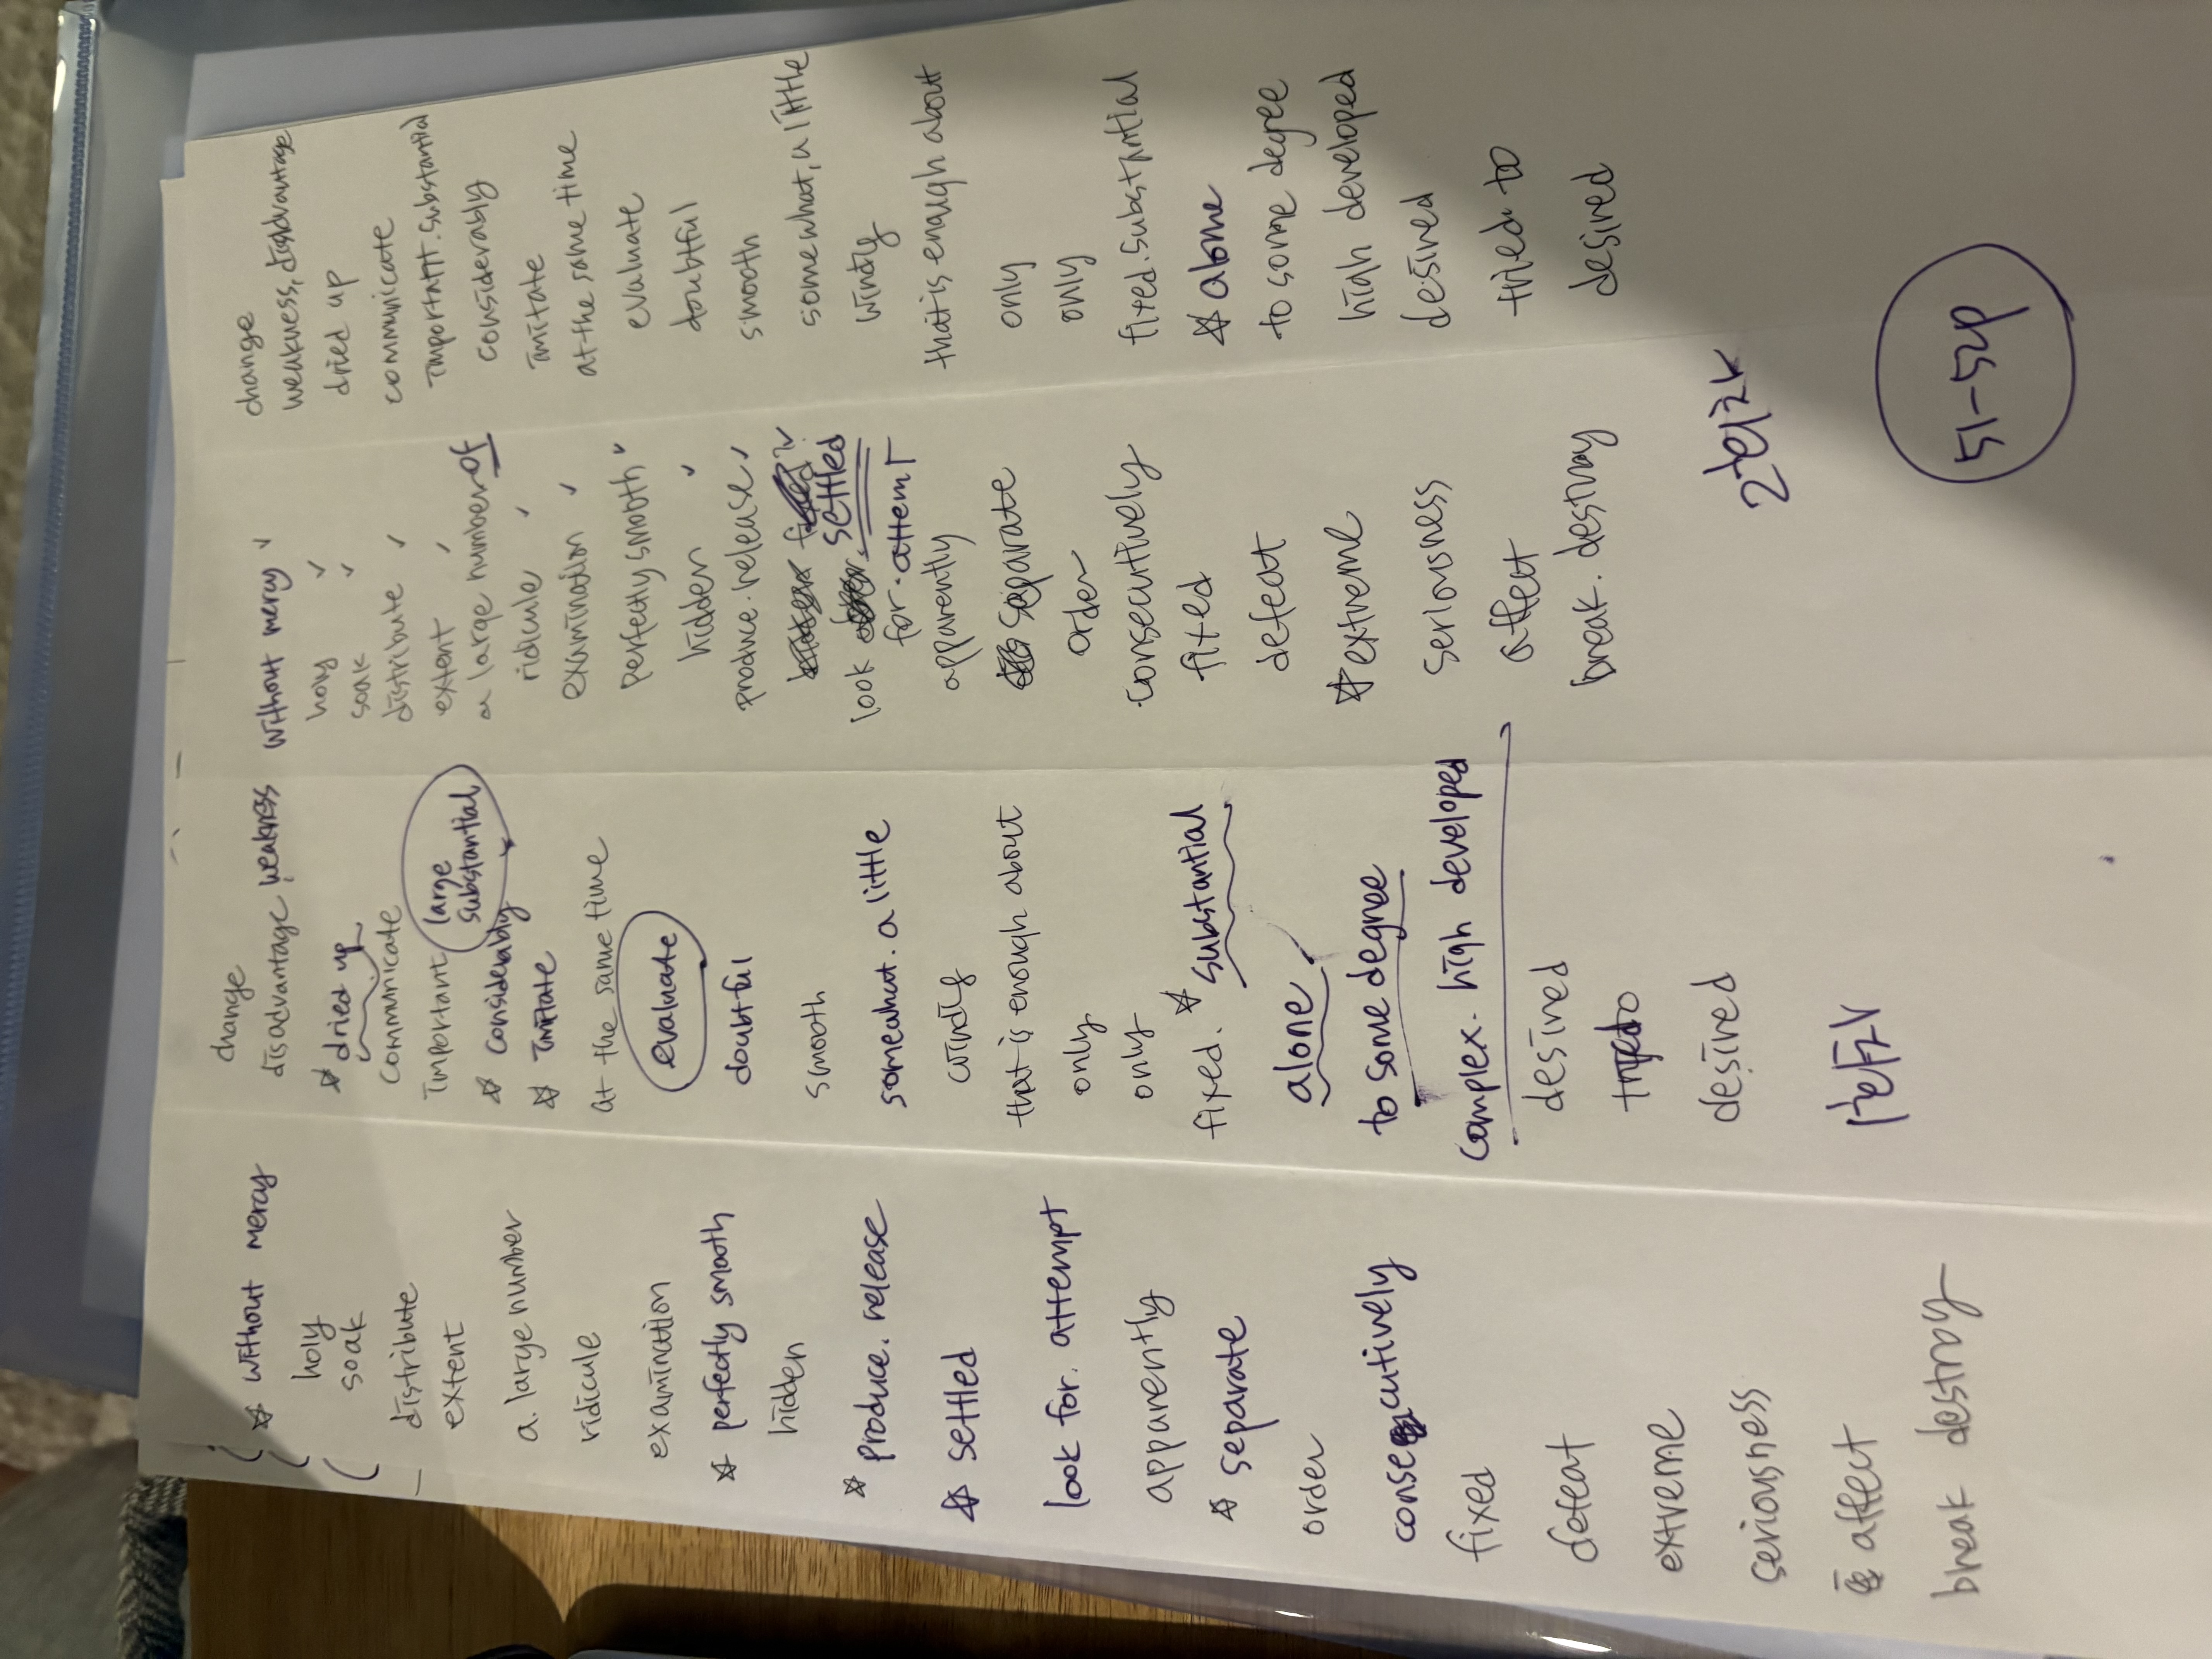 ☆ without mercy
holy
soak
distribute
extent
a. large number
ridicule
examination
☆ perfectly smooth
hidden
☆ produce. release
☆ settled
look for. attempt
apparently
☆ separate
order
consecutively
fixed
defeat
extreme
seriousness
affect
break destroy
change
disadvantage weakness
☆ dried up
communicate
important large substantial
☆ considerably
☆ imitate
at the same time
evaluate
doubtful
smooth
somewhat. a little
windy
that is enough about
only
only
fixed. ☆ substantial
alone
to some degree
complex. high developed
desired
desired
1회차
without mercy ✓
holy ✓
soak ✓
distribute ✓
extent ✓
a large number of
ridicule ✓
examination ✓
perfectly smooth ✓
hidden ✓
produce. release ✓
settled
look for. attempt
apparently
separate
order
consecutively
fixed
defeat
☆ extreme
seriousness
affect
break. destroy
2회차
change
weakness, disadvantage
dried up
communicate
important. substantial
considerably
imitate
at the same time
evaluate
doubtful
smooth
somewhat, a little
windy
that is enough about
only
only
fixed. substantial
☆ alone
to some degree
high developed
desired
tried to
desired
51-52p